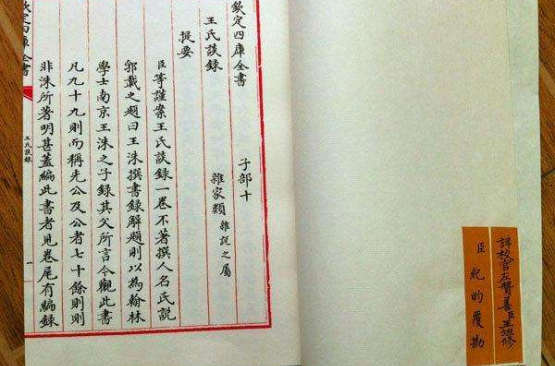 詳校官左贊善臣王坦修
臣紀昀覆勘
欽定四庫全書
子部十
王氏談錄
雜家類
雜說之屬
提要
臣等謹案王氏談錄一卷不著撰人名氏說
郛載之題曰王洙撰書錄解題則以為翰林
學士南京王洙之子錄其父所言今觀此書
凡九十九則而稱先公及公者七十餘則則
非洙所著明甚葢編此書者見卷尾有編錄
欽定四庫全書
王氏談錄
一